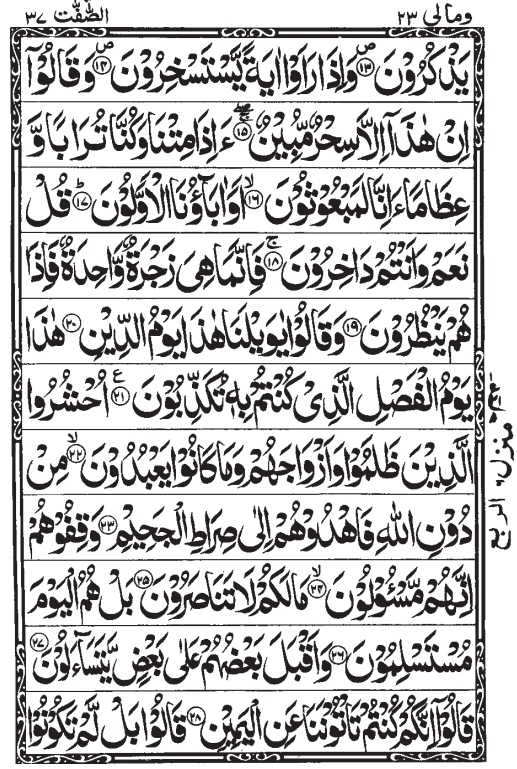 وَمَا لِيَ ٢٣
الصّٰفّٰت ٣٧
يَذْكُرُوْنَ ۪﴿١٣﴾ وَاِذَا رَاَوْا اٰيَةً يَّسْتَسْخِرُوْنَ ۪﴿١٤﴾ وَقَالُوْۤا
اِنْ هٰذَاۤ اِلَّا سِحْرٌ مُّبِيْنٌ ﴿١٥﴾ ءَاِذَا مِتْنَا وَكُنَّا تُرَابًا وَّ
عِظَامًا ءَاِنَّا لَمَبْعُوْثُوْنَ ۙ﴿١٦﴾ اَوَاٰبَآؤُنَا الْاَوَّلُوْنَ ؕ﴿١٧﴾ قُلْ
نَعَمْ وَاَنْتُمْ دَاخِرُوْنَ ۚ﴿١٨﴾ فَاِنَّمَا هِيَ زَجْرَةٌ وَّاحِدَةٌ فَاِذَا
هُمْ يَنْظُرُوْنَ ﴿١٩﴾ وَقَالُوْا يٰوَيْلَنَا هٰذَا يَوْمُ الدِّيْنِ ﴿٢٠﴾ هٰذَا
يَوْمُ الْفَصْلِ الَّذِيْ كُنْتُمْ بِهٖ تُكَذِّبُوْنَ ﴿٢١﴾ ع اُحْشُرُوا
الَّذِيْنَ ظَلَمُوْا وَاَزْوَاجَهُمْ وَمَا كَانُوْا يَعْبُدُوْنَ ۙ﴿٢٢﴾ مِنْ
دُوْنِ اللّٰهِ فَاهْدُوْهُمْ اِلٰى صِرَاطِ الْجَحِيْمِ ﴿٢٣﴾ وَقِفُوْهُمْ
اِنَّهُمْ مَّسْـُٔوْلُوْنَ ۙ﴿٢٤﴾ مَا لَكُمْ لَا تَنَاصَرُوْنَ ﴿٢٥﴾ بَلْ هُمُ الْيَوْمَ
مُسْتَسْلِمُوْنَ ﴿٢٦﴾ وَاَقْبَلَ بَعْضُهُمْ عَلٰى بَعْضٍ يَّتَسَآءَلُوْنَ ﴿٢٧﴾
قَالُوْۤا اِنَّكُمْ كُنْتُمْ تَاْتُوْنَنَا عَنِ الْيَمِيْنِ ﴿٢٨﴾ قَالُوْا بَلْ لَّمْ تَكُوْنُوْا
منزل ٦
الربع